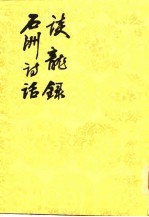 談龍錄
石洲詩話